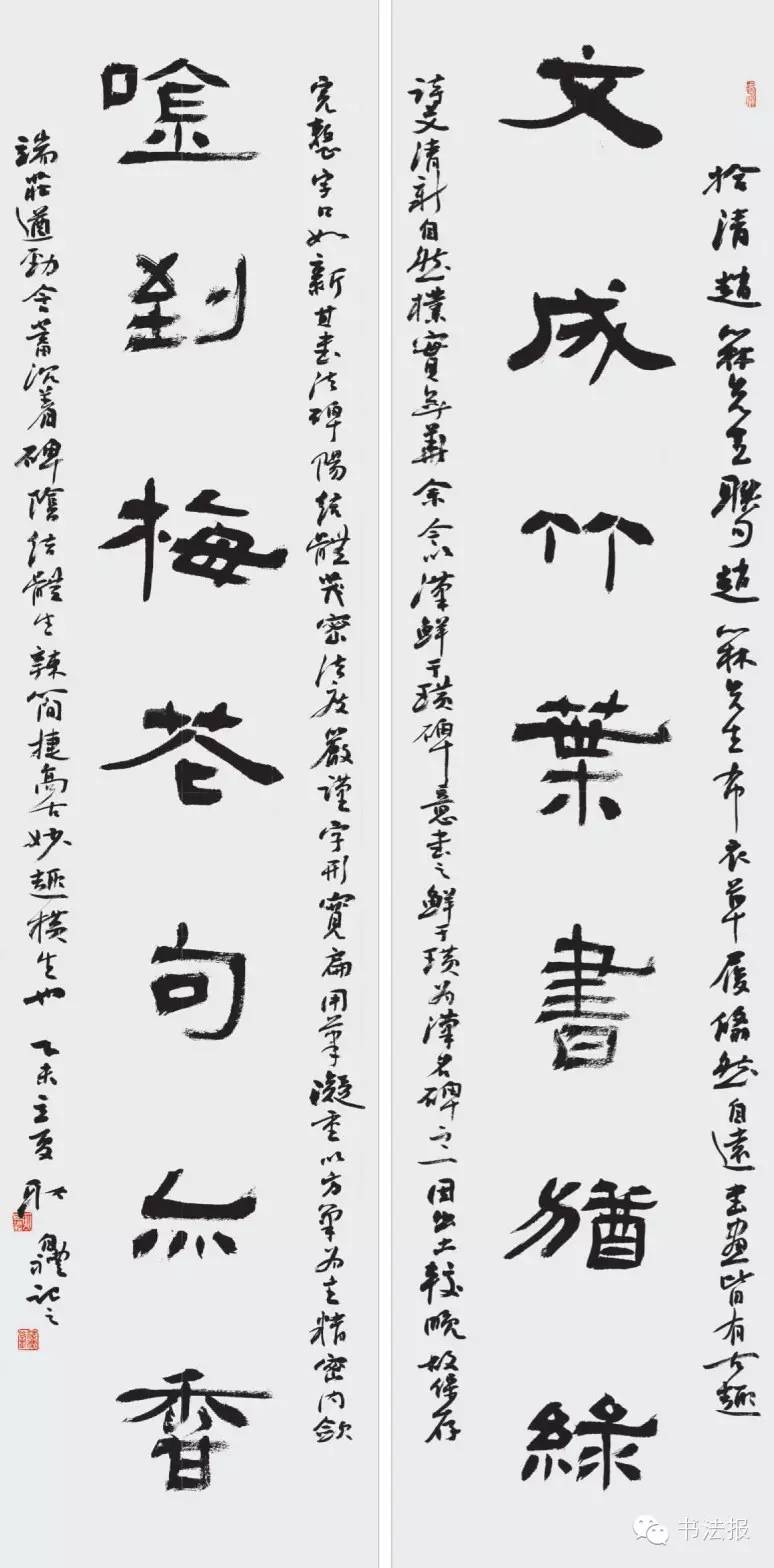 拾清趙先生聯句趙先生布衣草履翛然自遠書畫皆有古趣
文成竹葉書猶綠
詩文清新自然樸實無華余以漢鮮于璜碑意書之鮮于璜為漢名碑之一因出土較晚故保存
完整字口如新其書法碑陽結體茂密法度嚴謹字形寬扁用筆凝重以方筆為主精密內斂
唫到梅花句亦香
端莊遒勁含蓄沉着碑陰結體生辣簡捷高古妙趣橫生也 乙未立夏 耿記之
书法报